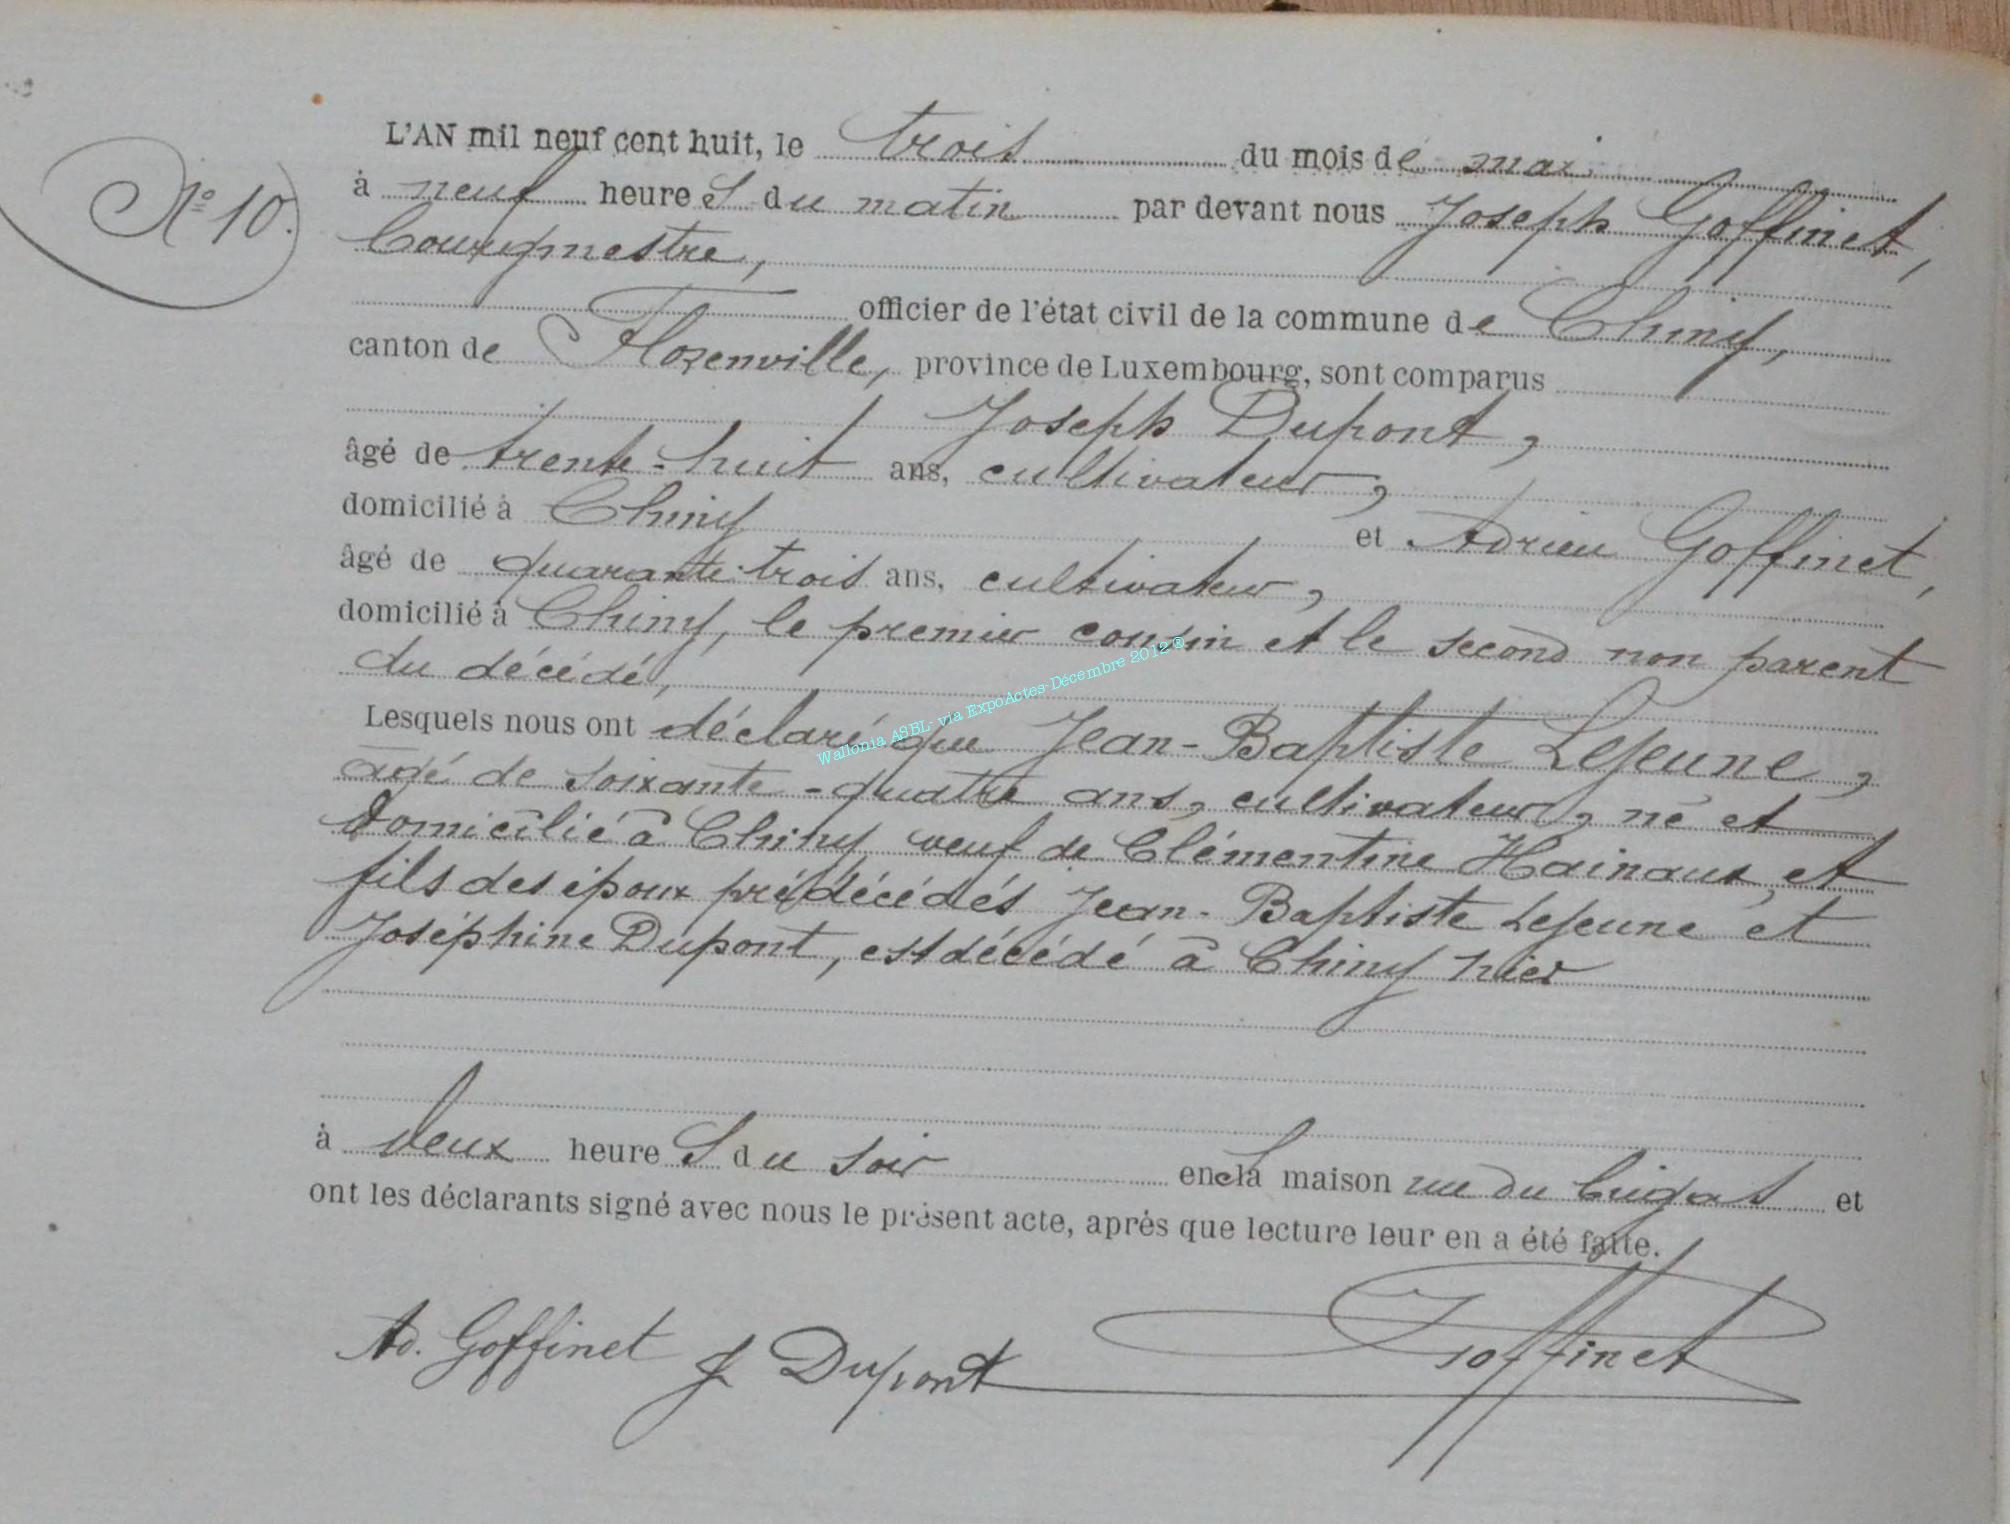 N° 10.
L'AN mil neuf cent huit, le trois du mois de mai
à neuf heures du matin par devant nous Joseph Goffinet,
bourgmestre,
officier de l'état civil de la commune de Chiny,
canton de Florenville, province de Luxembourg, sont comparus
Joseph Dupont,
âgé de trente-huit ans, cultivateur,
domicilié à Chiny et Adrien Goffinet,
âgé de quarante-trois ans, cultivateur,
domicilié à Chiny, le premier cousin et le second non parent
du décédé,
Wallonia ASBL- via ExpoActes-Décembre 2012®
Lesquels nous ont déclaré que Jean-Baptiste Lejeune,
âgé de soixante-quatre ans, cultivateur, né et
domicilié à Chiny veuf de Clémentine Hainaux, et
fils des époux prédécédés Jean-Baptiste Lejeune et
Joséphine Dupont, est décédé à Chiny hier
à deux heures du soir en sa maison rue du et
ont les déclarants signé avec nous le présent acte, après que lecture leur en a été faite.
Ad. Goffinet J Dupont Goffinet